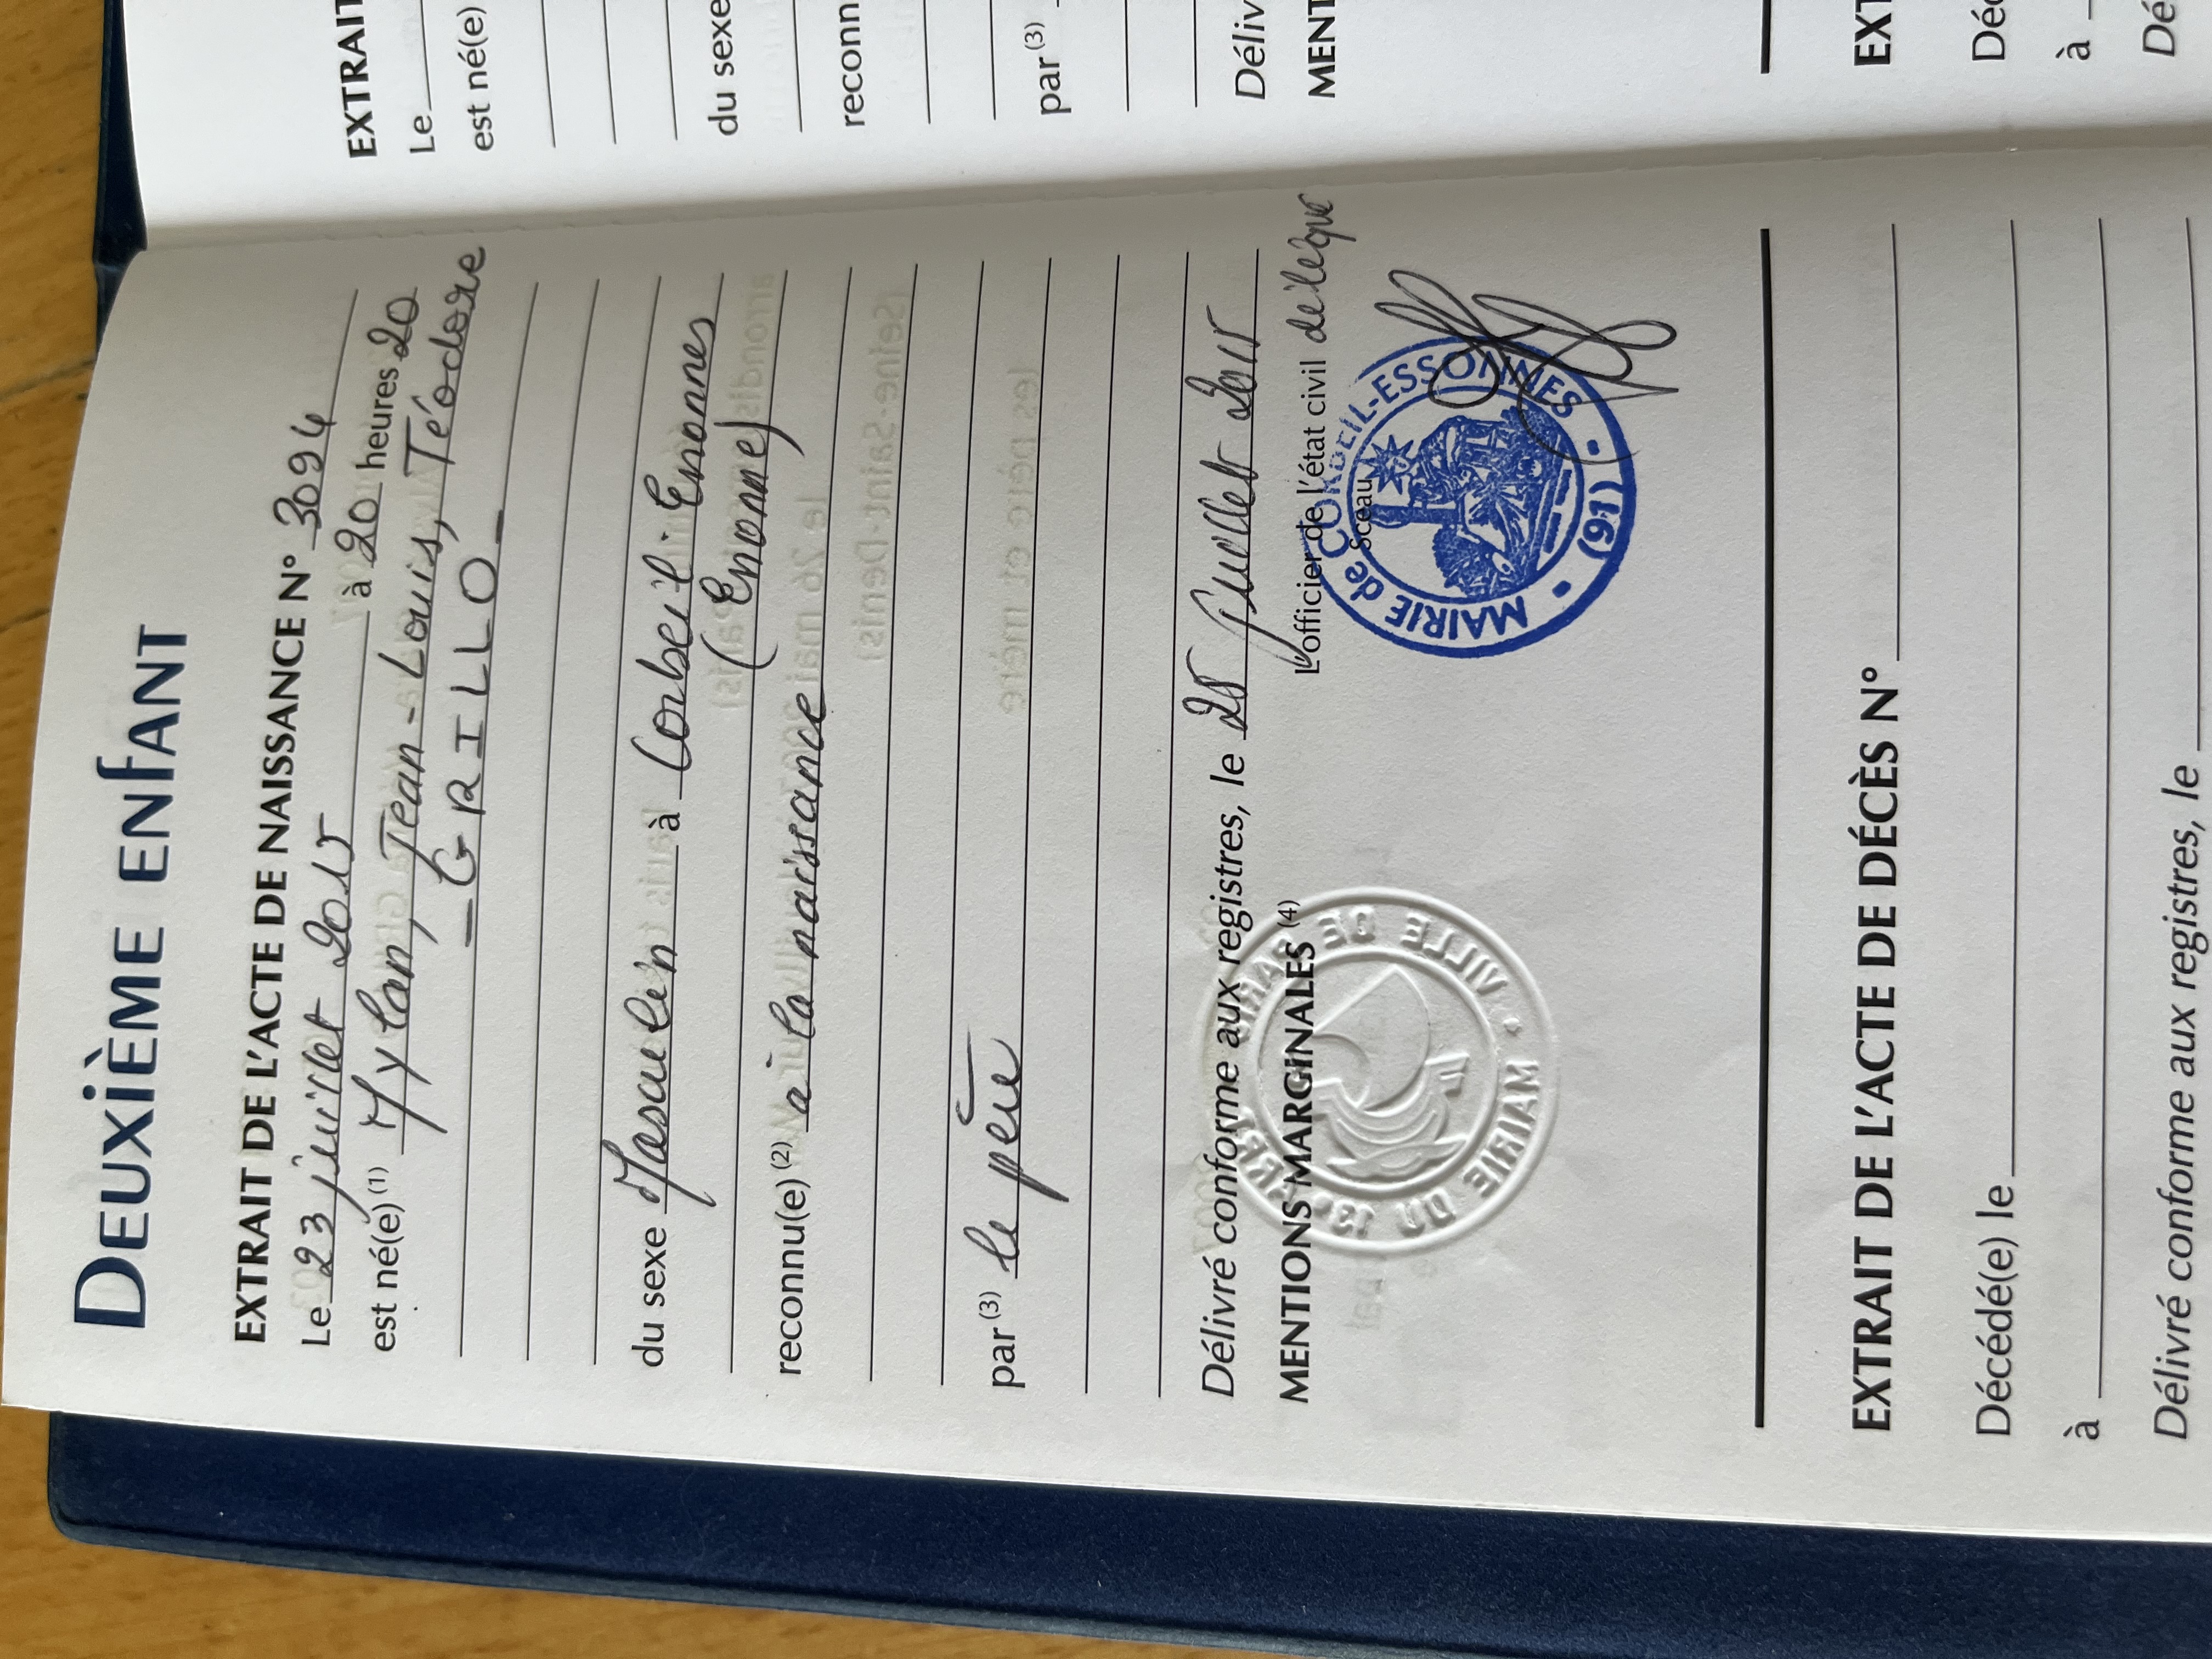 DEUXIÈME ENFANT
EXTRAIT DE L'ACTE DE NAISSANCE N° 3094
Le 23 juillet 2015 à 20 heures 20
est né(e) (1) Mylan, Jean-Louis, Téodore
_ GRILLO _
du sexe Masculin à Corbeil-Essonnes
(Essonne)
reconnu(e) (2) à la naissance
par (3) le père
Délivré conforme aux registres, le 25 Juillet 2015
MENTIONS MARGINALES (4)
L'officier de l'état civil délégué
Sceau
MAIRIE de CORBEIL-ESSONNES
(91)
MAIRIE DU 13e ARRt
VILLE DE PARIS
EXTRAIT DE L'ACTE DE DÉCÈS N°
Décédé(e) le
à
Délivré conforme aux registres, le
EXTRAIT
Le
est né(e)
du sexe
reconn
par (3)
Déliv
MENT
EXT
Déc
à
Dé